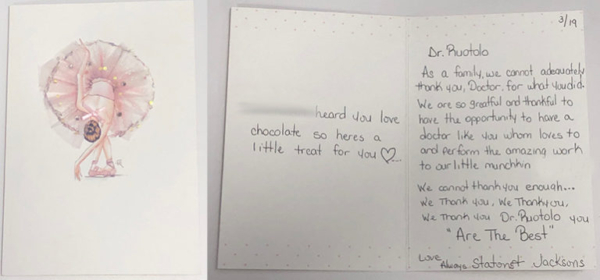 heard you love
chocolate so heres a
little treat for you ♡...
3/19
Dr. Ruotolo
As a family, we cannot adequately
thank you, Doctor, for what you did.
We are so greatful and thankful to
have the opportunity to have a
doctor like you whom loves to
and perform the amazing work
to our little munchkin
We cannot thank you enough...
We Thank you, We Thank you,
We Thank you Dr. Ruotolo you
"Are The Best"
Love
Always Jacksons